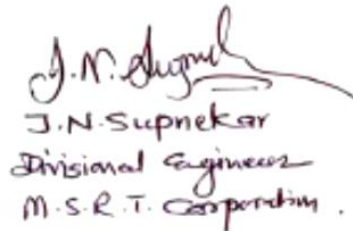 J.N. Supnekar
Divisional Engineer
M.S.R.T. Corporation.